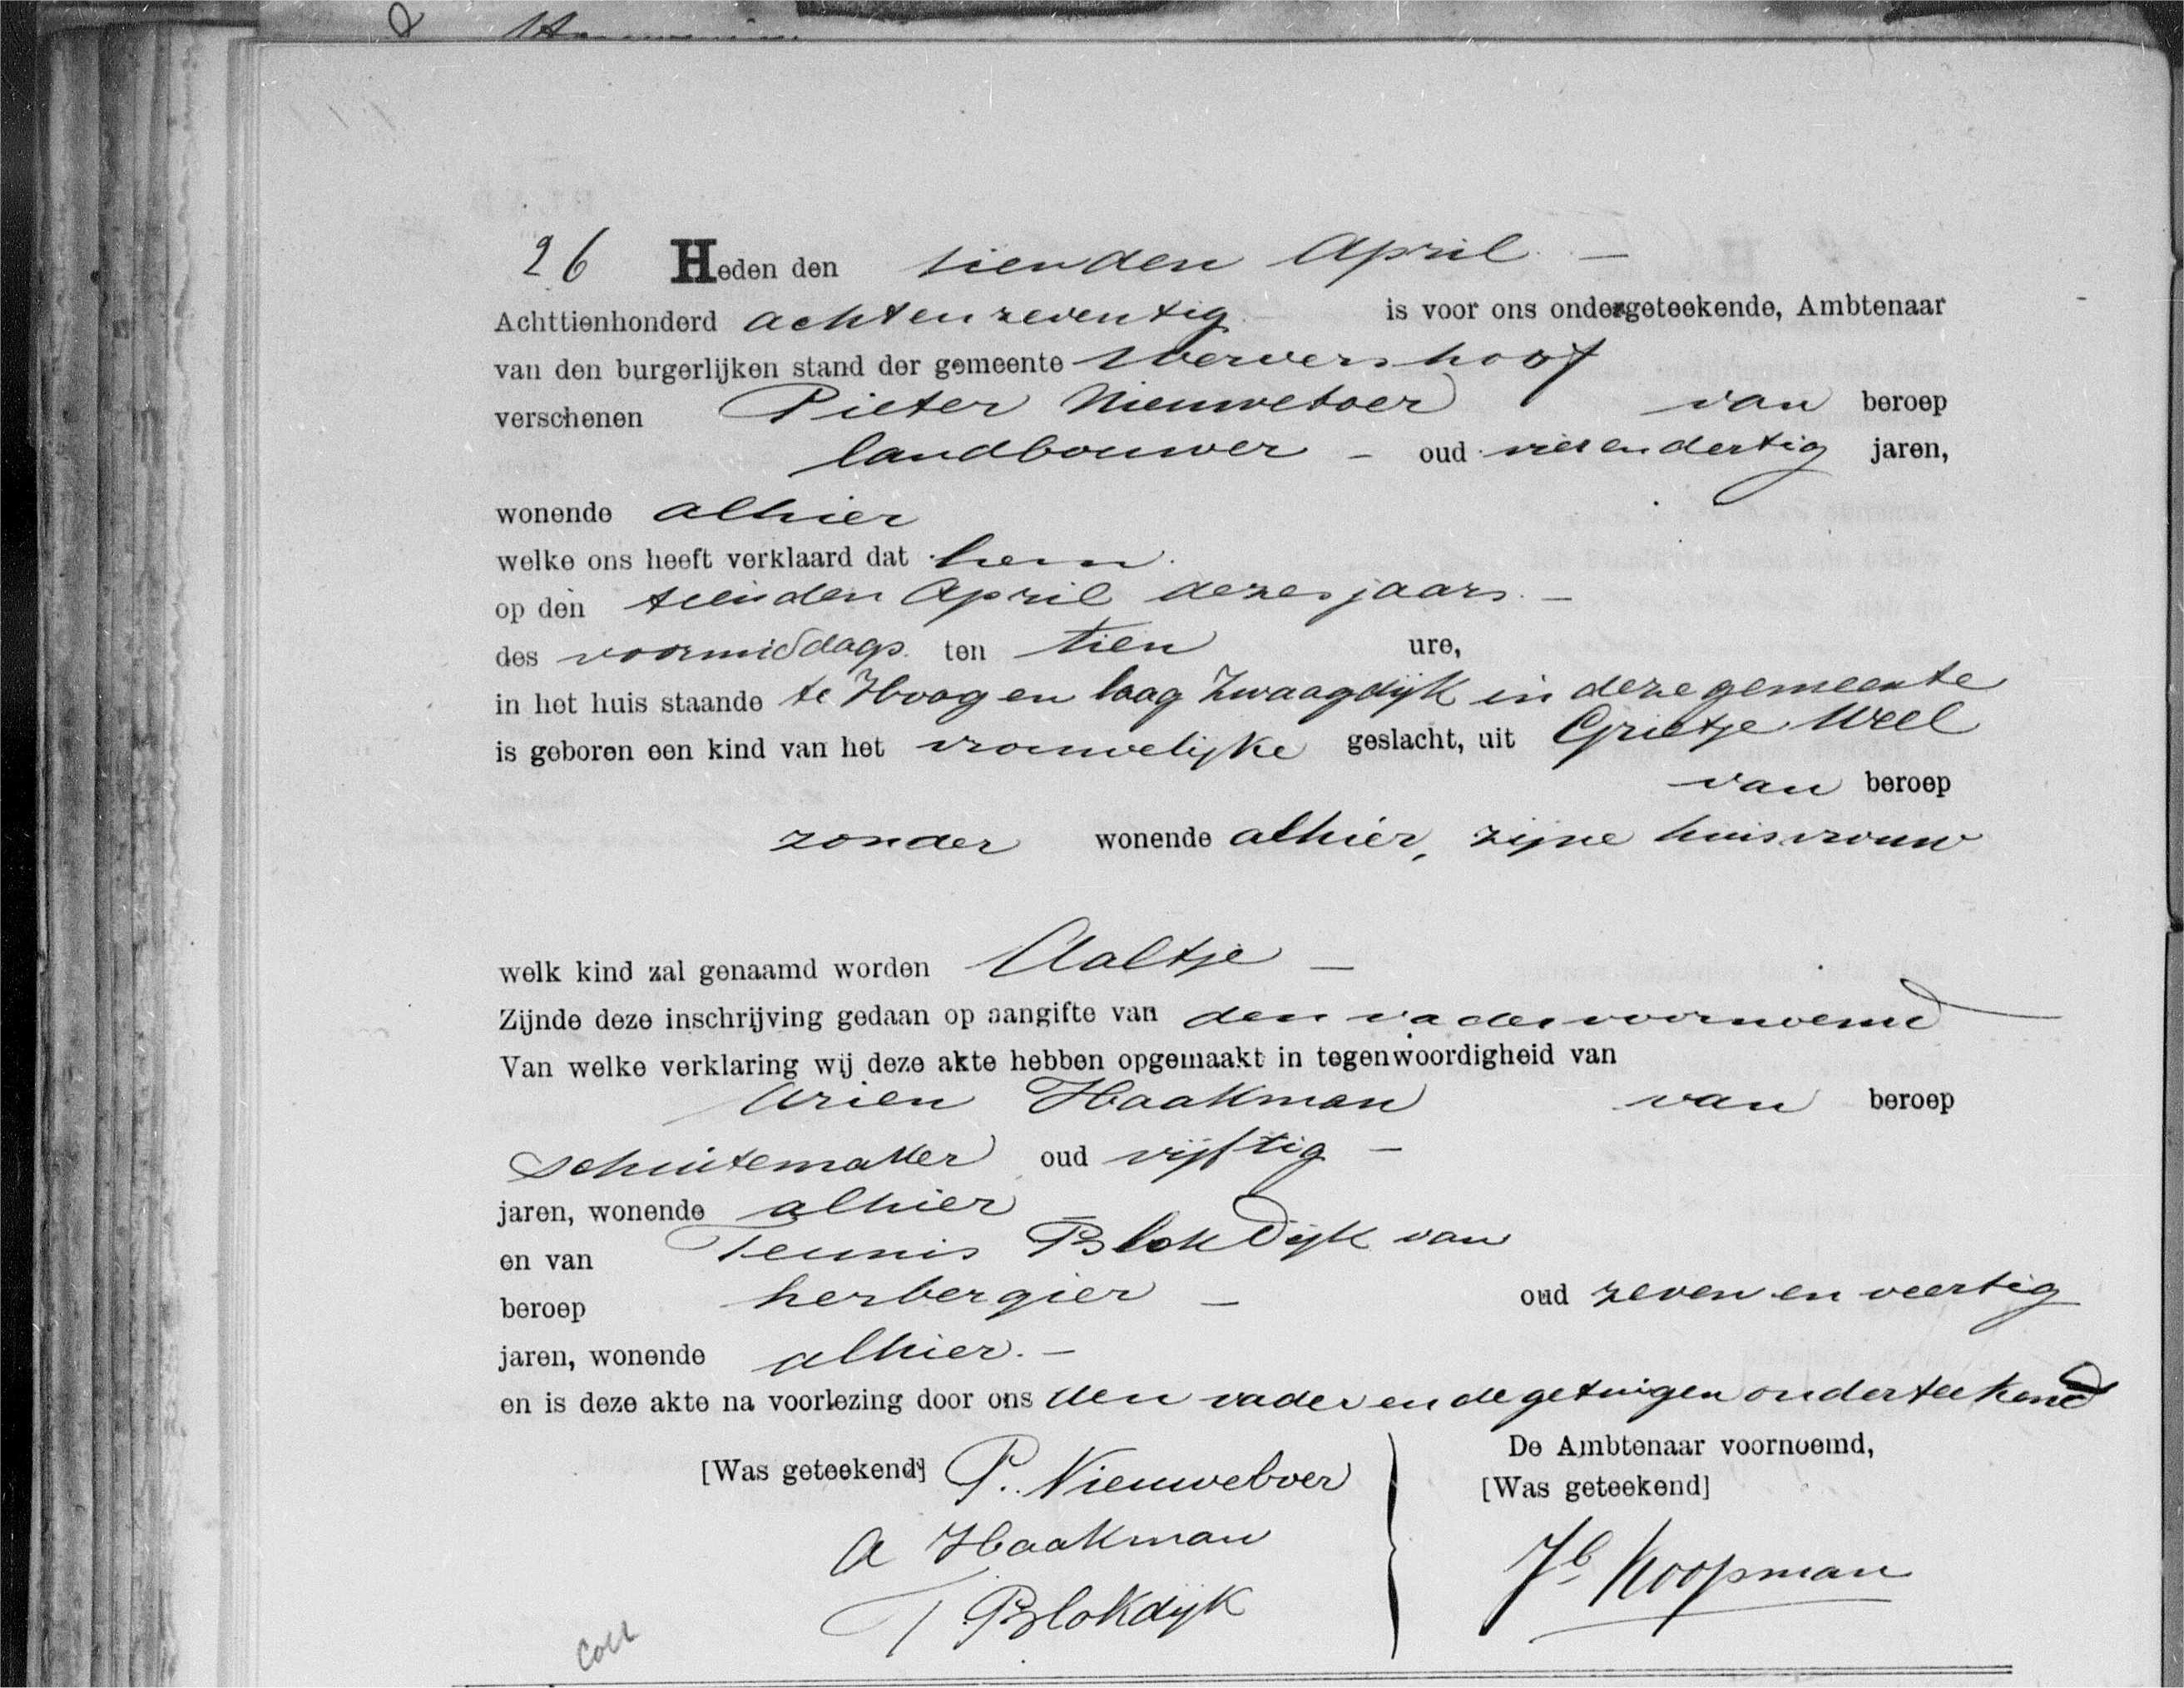 26 Heden den tienden April —
Achttienhonderd achtenzeventig is voor ons ondergeteekende, Ambtenaar
van den burgerlijken stand der gemeente Wervershoof
verschenen Pieter Nieuweboer van beroep
landbouwer — oud vierendertig jaren,
wonende alhier
welke ons heeft verklaard dat hem
op den tienden April dezes jaars. —
des voormiddags ten tien ure,
in het huis staande te Hoog en laag Zwaagdijk in deze gemeente
is geboren een kind van het vrouwelijke geslacht, uit Grietje Weel
van beroep
zonder wonende alhier, zijne huisvrouw
welk kind zal genaamd worden Aaltje —
Zijnde deze inschrijving gedaan op aangifte van den vader voornoemd
Van welke verklaring wij deze akte hebben opgemaakt in tegenwoordigheid van
Arien Haakman van beroep
schuitemaker oud vijftig —
jaren, wonende alhier
en van Teunis Blokdijk van
beroep herbergier — oud zeven en veertig
jaren, wonende alhier. —
en is deze akte na voorlezing door ons den vader en de getuigen onderteekend
[Was geteekend] P. Nieuweboer
A Haakman
T Blokdijk
De Ambtenaar voornoemd,
[Was geteekend]
Jb Koopman
Coll